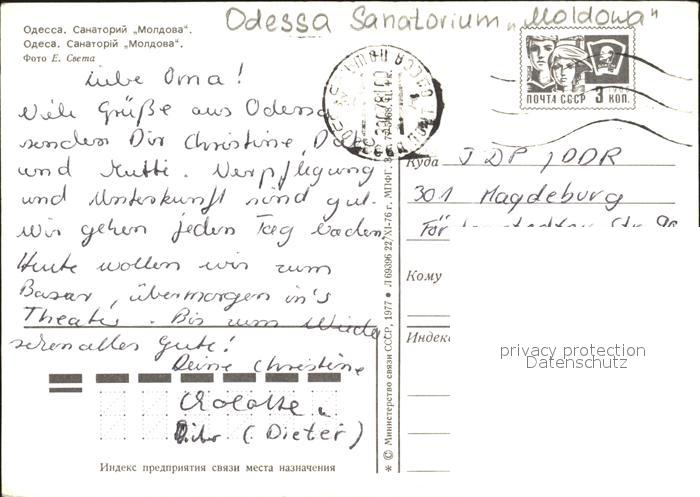 Odessa Sanatorium „Moldowa“
Одесса. Санаторий „Молдова“.
Одеса. Санаторій „Молдова“.
Фото Е. Света
ПОЧТА СССР 3 КОП.
Liebe Oma!
Viele Grüße aus Odessa
senden Dir Christine,
und Mutti. Verpflegung
und Unterkunft sind gut.
Wir gehen jeden Tag baden.
Heute wollen wir zum
Basar, übermorgen in's
Theater. Bis zum Wieder
sehen alles Gute!
Deine Christine
u.
(Dieter)
Индекс предприятия связи места назначения
* © Министерство связи СССР, 1977 • Л 69396 22/XI-76 г. МПФГ.
Куда DDR
301 Magdeburg
Str.
Кому
Индекс
privacy protection
Datenschutz